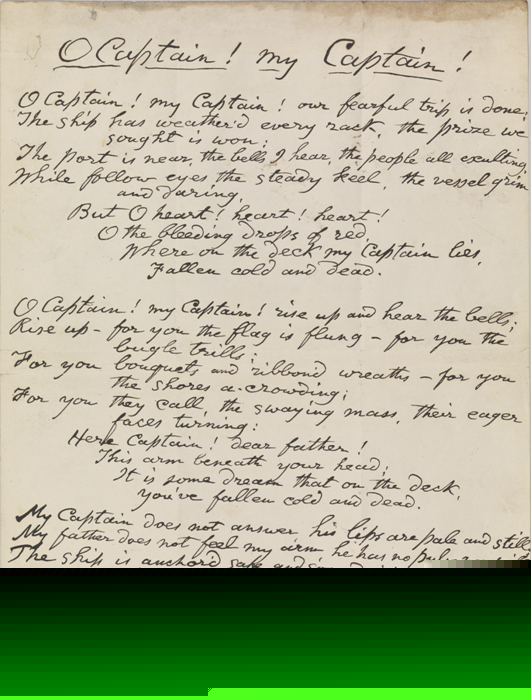 O Captain! my Captain!
O Captain! my Captain! our fearful trip is done;
The ship has weather'd every rack, the prize we
sought is won;
The port is near, the bells I hear, the people all exulting,
While follow eyes the steady keel, the vessel grim
and daring,
But O heart! heart! heart!
O the bleeding drops of red,
Where on the deck my Captain lies,
Fallen cold and dead.
O Captain! my Captain! rise up and hear the bells;
Rise up - for you the flag is flung - for you the
bugle trills;
For you bouquets and ribbon'd wreaths - for you
the shores a-crowding;
For you they call, the swaying mass, their eager
faces turning:
Here Captain! dear father!
This arm beneath your head;
It is some dream that on the deck,
you've fallen cold and dead.
My Captain does not answer, his lips are pale and still
My father does not feel my arm, he has no
The ship is anchor'd safe and